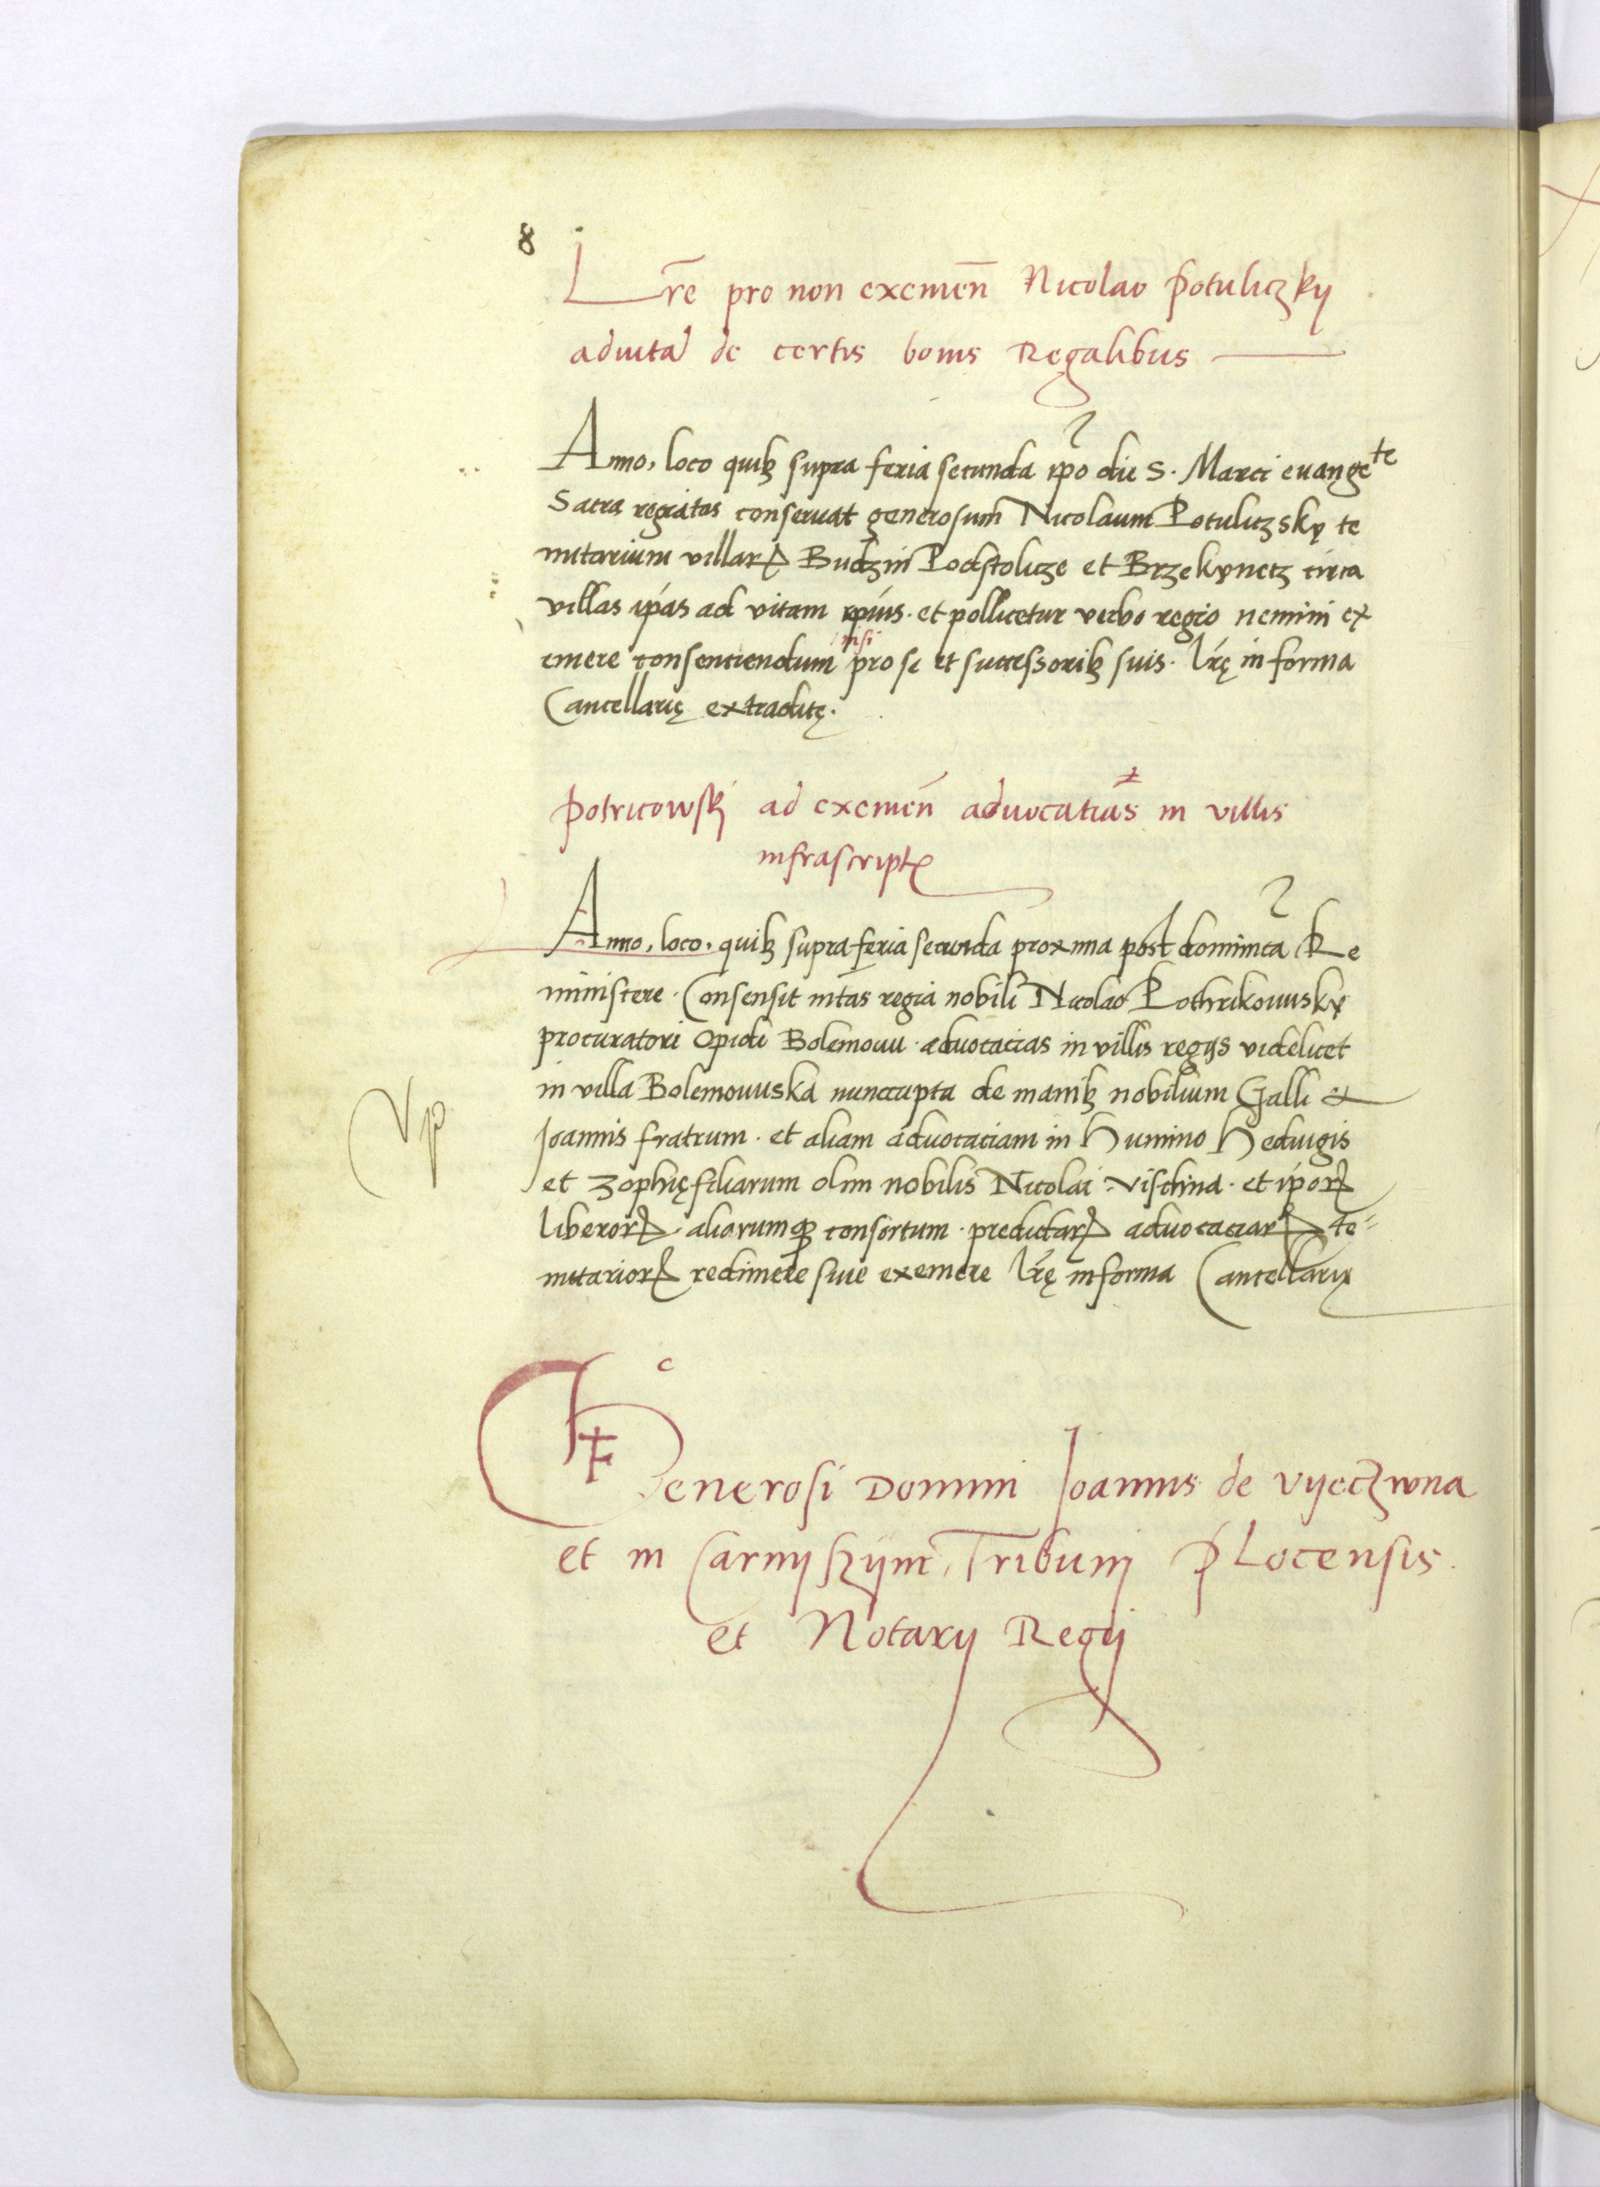 8
Lr̃e pro non exemeñ Nicolao Potuliczky
ad vitã de certis bonis Regalibus
Anno, loco quibꝫ supra feria secunda ip̃o die S. Marci euangete
Sacra regia tas conseruat generosum Nicolaum Potuliczsky te
nutarium villarꝝ Budzin Podstolicze et Brzekynetz circa
villas ip̃as ad vitam ip̃ius. et pollicetur verbo regio nemini ex
emere consenciendum nisi pro se et successoribꝫ suis. Lr̃ę in forma
Cancellarię extraditę.
Potricowskj ad exemeñ aduocatias in villis
infrascriptꝭ
Anno, loco, quibꝫ supra feria secunda proxima post dominicã Re
miniscere. Consensit mtas regia nobili Nicolao Pothrikouusky
procuratori Opidi Bolemouu. aduocacias in villis regijs videlicet
in villa Bolemouuska nunccupta de manibꝫ nobilium Galli &
Joannis fratrum. et aliam aduocaciam in Humino Heduigis
et Zophię filiarum olim nobilis Nicolai Vischna. et ip̃orꝝ
liberorꝝ. aliorumqꝫ consortum. predictarꝝ aduocaciarꝝ te=
nutariorꝝ redimere siue exemere Lr̃ę in forma Cancellarię
Vp
Generosi Domini Joannis de Vyeczwna
et in Carnyszyno, Tribunj Plocensis.
et Notarij Regij